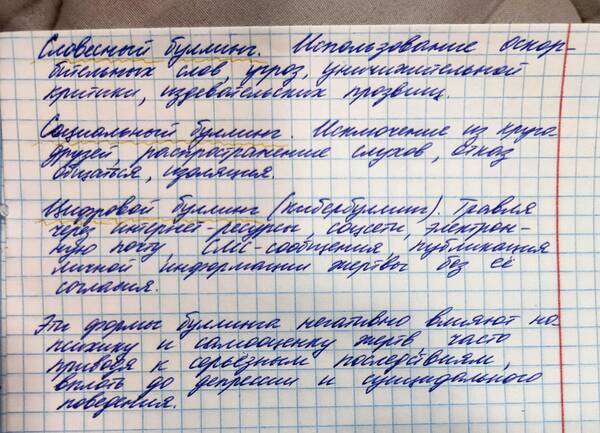 Словесный буллинг. Использование оскор-
бительных слов, угроз, уничижительной
критики, издевательских прозвищ.
Социальный буллинг. Исключение из круга
друзей, распространение слухов, отказ
общаться, изоляция.
Цифровой буллинг (кибербуллинг). Травля
через интернет-ресурсы, соцсети, электрон-
ную почту СМС-сообщения, публикация
личной информации жертвы без её
согласия.
Эти формы буллинга негативно влияют на
психику и самооценку жертв часто
приводя к серьезным последствиям,
вплоть до депрессии и суицидального
поведения.